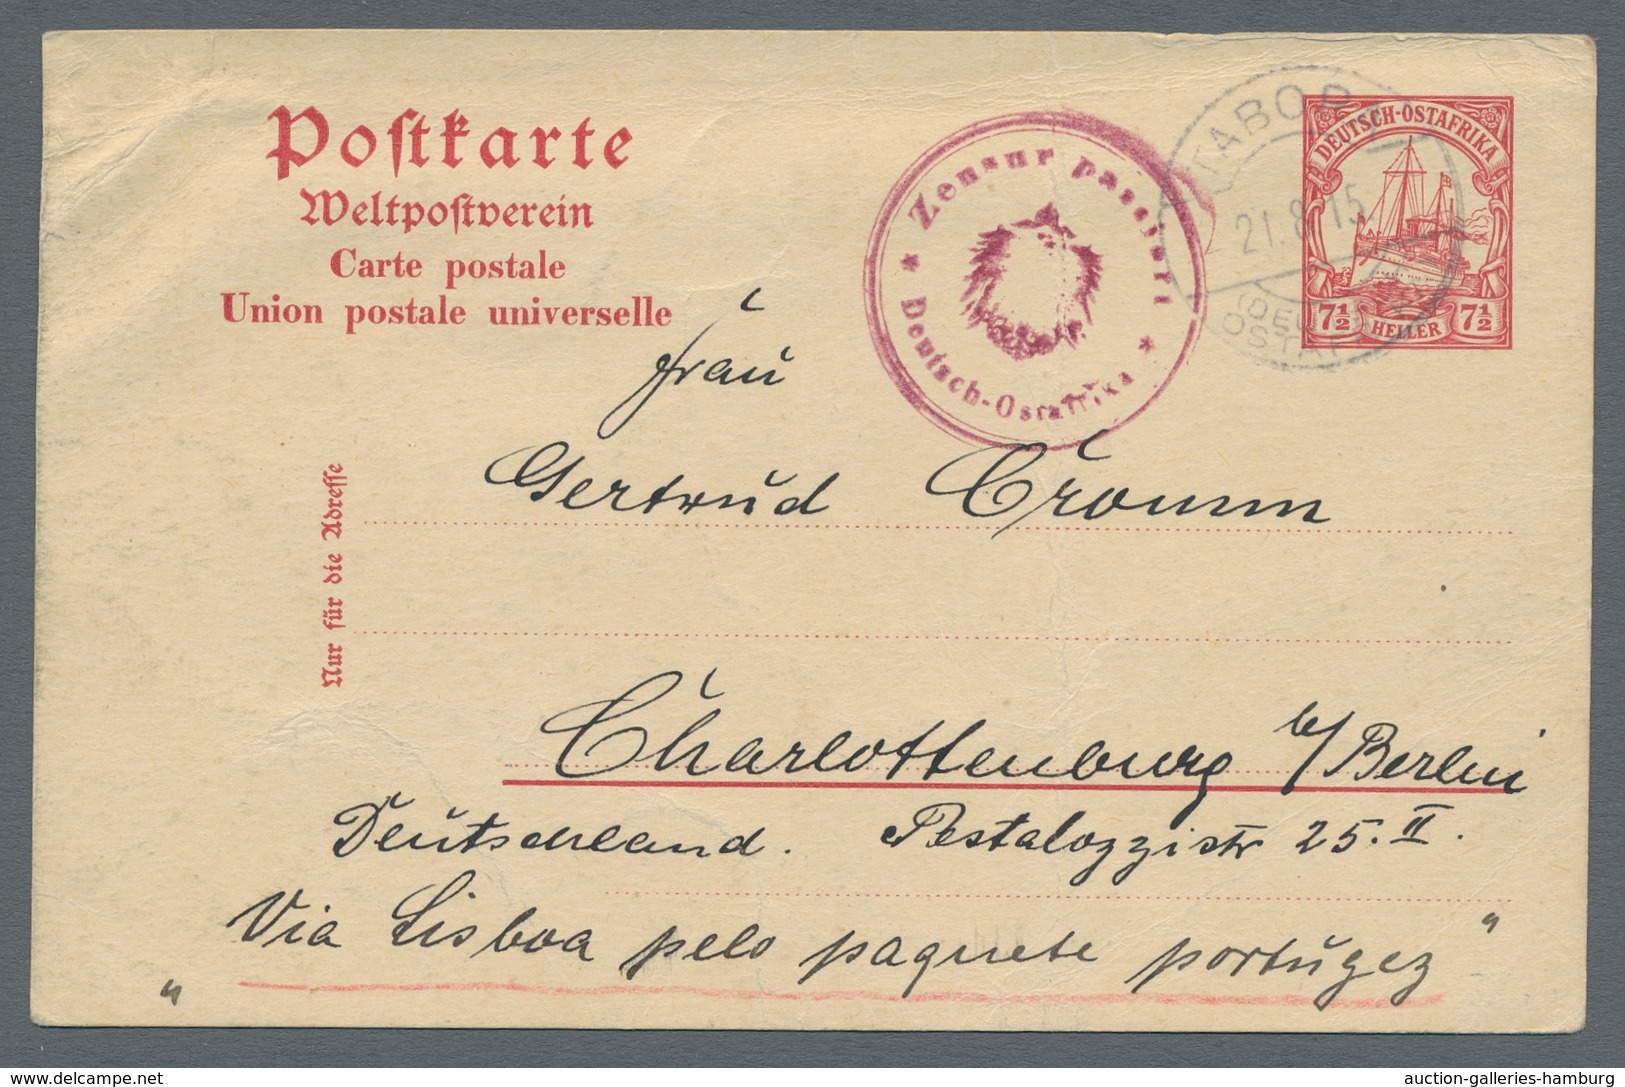 Postkarte
Weltpostverein
Carte postale
Union postale universelle
Nur für die Adresse
* Zensur passiert *
Deutsch-Ostafrika
TABORA
21.8.15
DEUTSCH-OSTAFRIKA
7½ HELLER 7½
Frau
Gertrud Cromm
Charlottenburg b/Berlin
Deutschland. Pestalozzistr 25. II.
"Via Lisboa pelo paquete portúgez"
delcampe.net
auction-galleries-hamburg